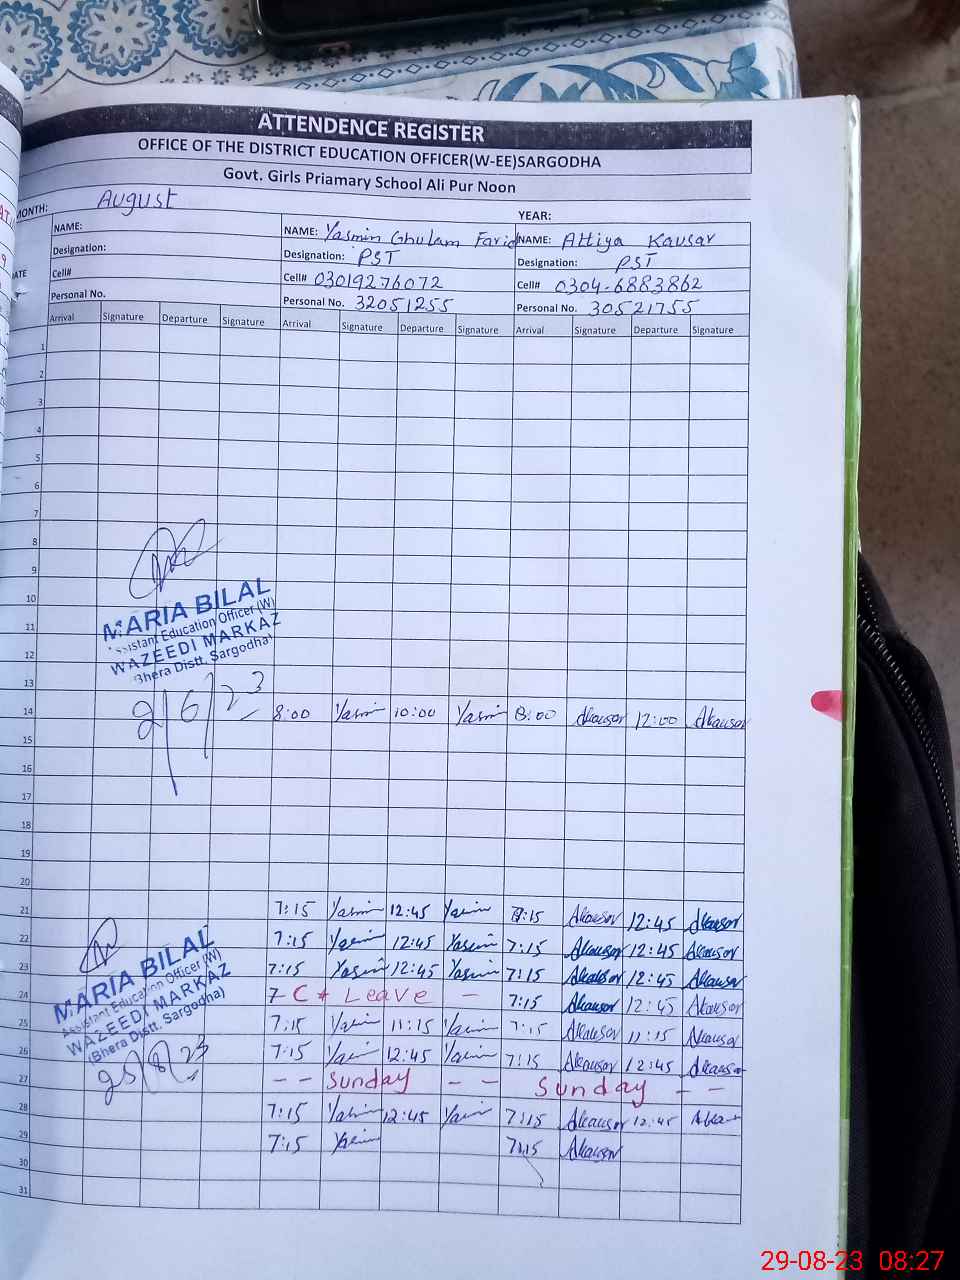 ATTENDENCE REGISTER
OFFICE OF THE DISTRICT EDUCATION OFFICER(W-EE)SARGODHA
Govt. Girls Priamary School Ali Pur Noon
MONTH: August YEAR:
NAME: NAME: Yasmin Ghulam Farid NAME: Attiya Kausar
Designation: Designation: PST Designation: PST
Cell# Cell# 03019276072 Cell# 0304-6883862
Personal No. Personal No. 32051255 Personal No. 30521755
Arrival Signature Departure Signature Arrival Signature Departure Signature Arrival Signature Departure Signature
1
2
3
4
5
6
7
8
9
10
MARIA BILAL
11
Assistant Education Officer (W)
12
WAZEEDI MARKAZ
Bhera Distt. Sargodha)
13
14 8:00 Yasmin 10:00 Yasmin 8:00 Akausar 12:00 Akausar
15
16
17
18
19
20
21 7:15 Yasmin 12:45 Yasmin 7:15 Akausar 12:45 Akausar
22 7:15 Yasmin 12:45 Yasmin 7:15 Akausar 12:45 Akausar
23 7:15 Yasmin 12:45 Yasmin 7:15 Akausar 12:45 Akausar
MARIA BILAL
Assistant Education Officer (W)
WAZEEDI MARKAZ
(Bhera Distt. Sargodha)
24 Leave - 7:15 Akausar 12:45 Akausar
25 7:15 Yasmin 11:15 Yasmin 7:15 Akausar 11:15 Akausar
26 7:15 Yasmin 12:45 Yasmin 7:15 Akausar 12:45 Akausar
27 - - Sunday - - Sunday - -
28 7:15 Yasmin 12:45 Yasmin 7:15 Akausar 12:45
29 7:15 Yasmin 7:15 Akausar
30
31
29-08-23 08:27